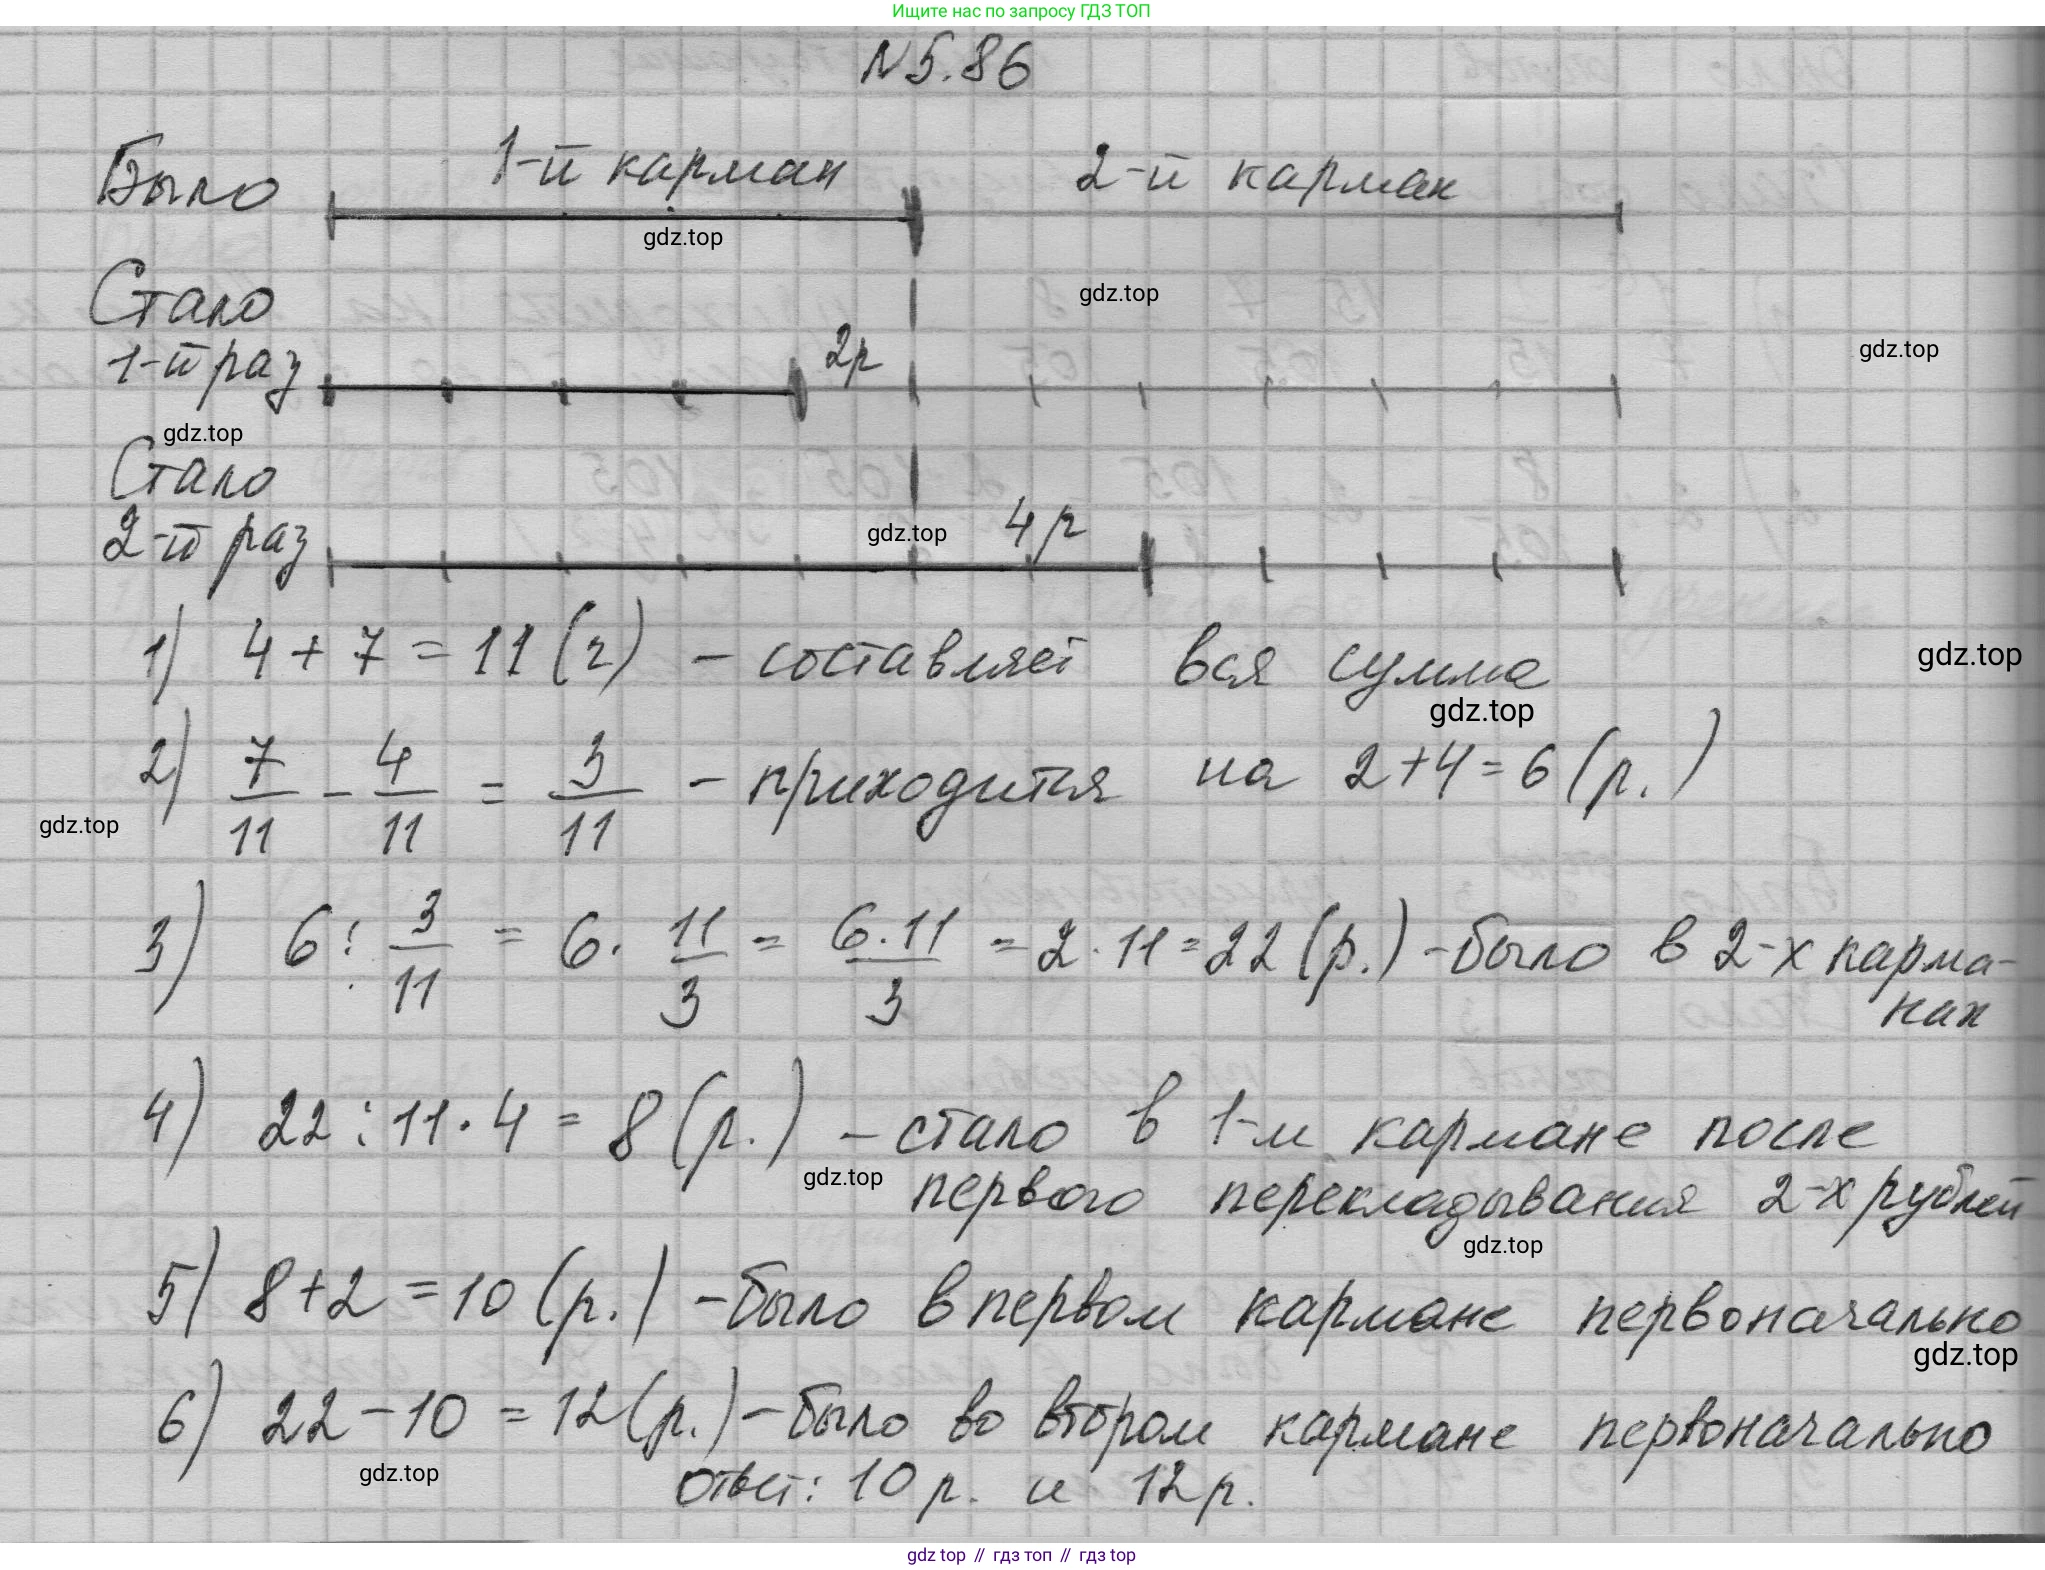 Ищите нас по запросу ГДЗ ТОП
N 5.86
Было 1-й карман 2-й карман
gdz.top
gdz.top
Стало
1-й раз 2р
gdz.top
gdz.top
Стало
2-й раз 4р
gdz.top
1) 4 + 7 = 11 (ч) - составляет вся сумма
gdz.top
gdz.top
2) 7/11 - 4/11 = 3/11 - приходится на 2+4=6 (р.)
gdz.top
3) 6 : 3/11 = 6 · 11/3 = 6·11/3 = 2·11=22 (р.) - было в 2-х карма-
нах
4) 22 : 11 · 4 = 8 (р.) - стало в 1-м кармане после
gdz.top
первого перекладывания 2-х рублей
gdz.top
5) 8+2 = 10 (р.) - было в первом кармане первоначально
gdz.top
6) 22 - 10 = 12 (р.) - было во втором кармане первоначально
gdz.top
ответ: 10 р. и 12 р.
gdz top // гдз топ // gdz top